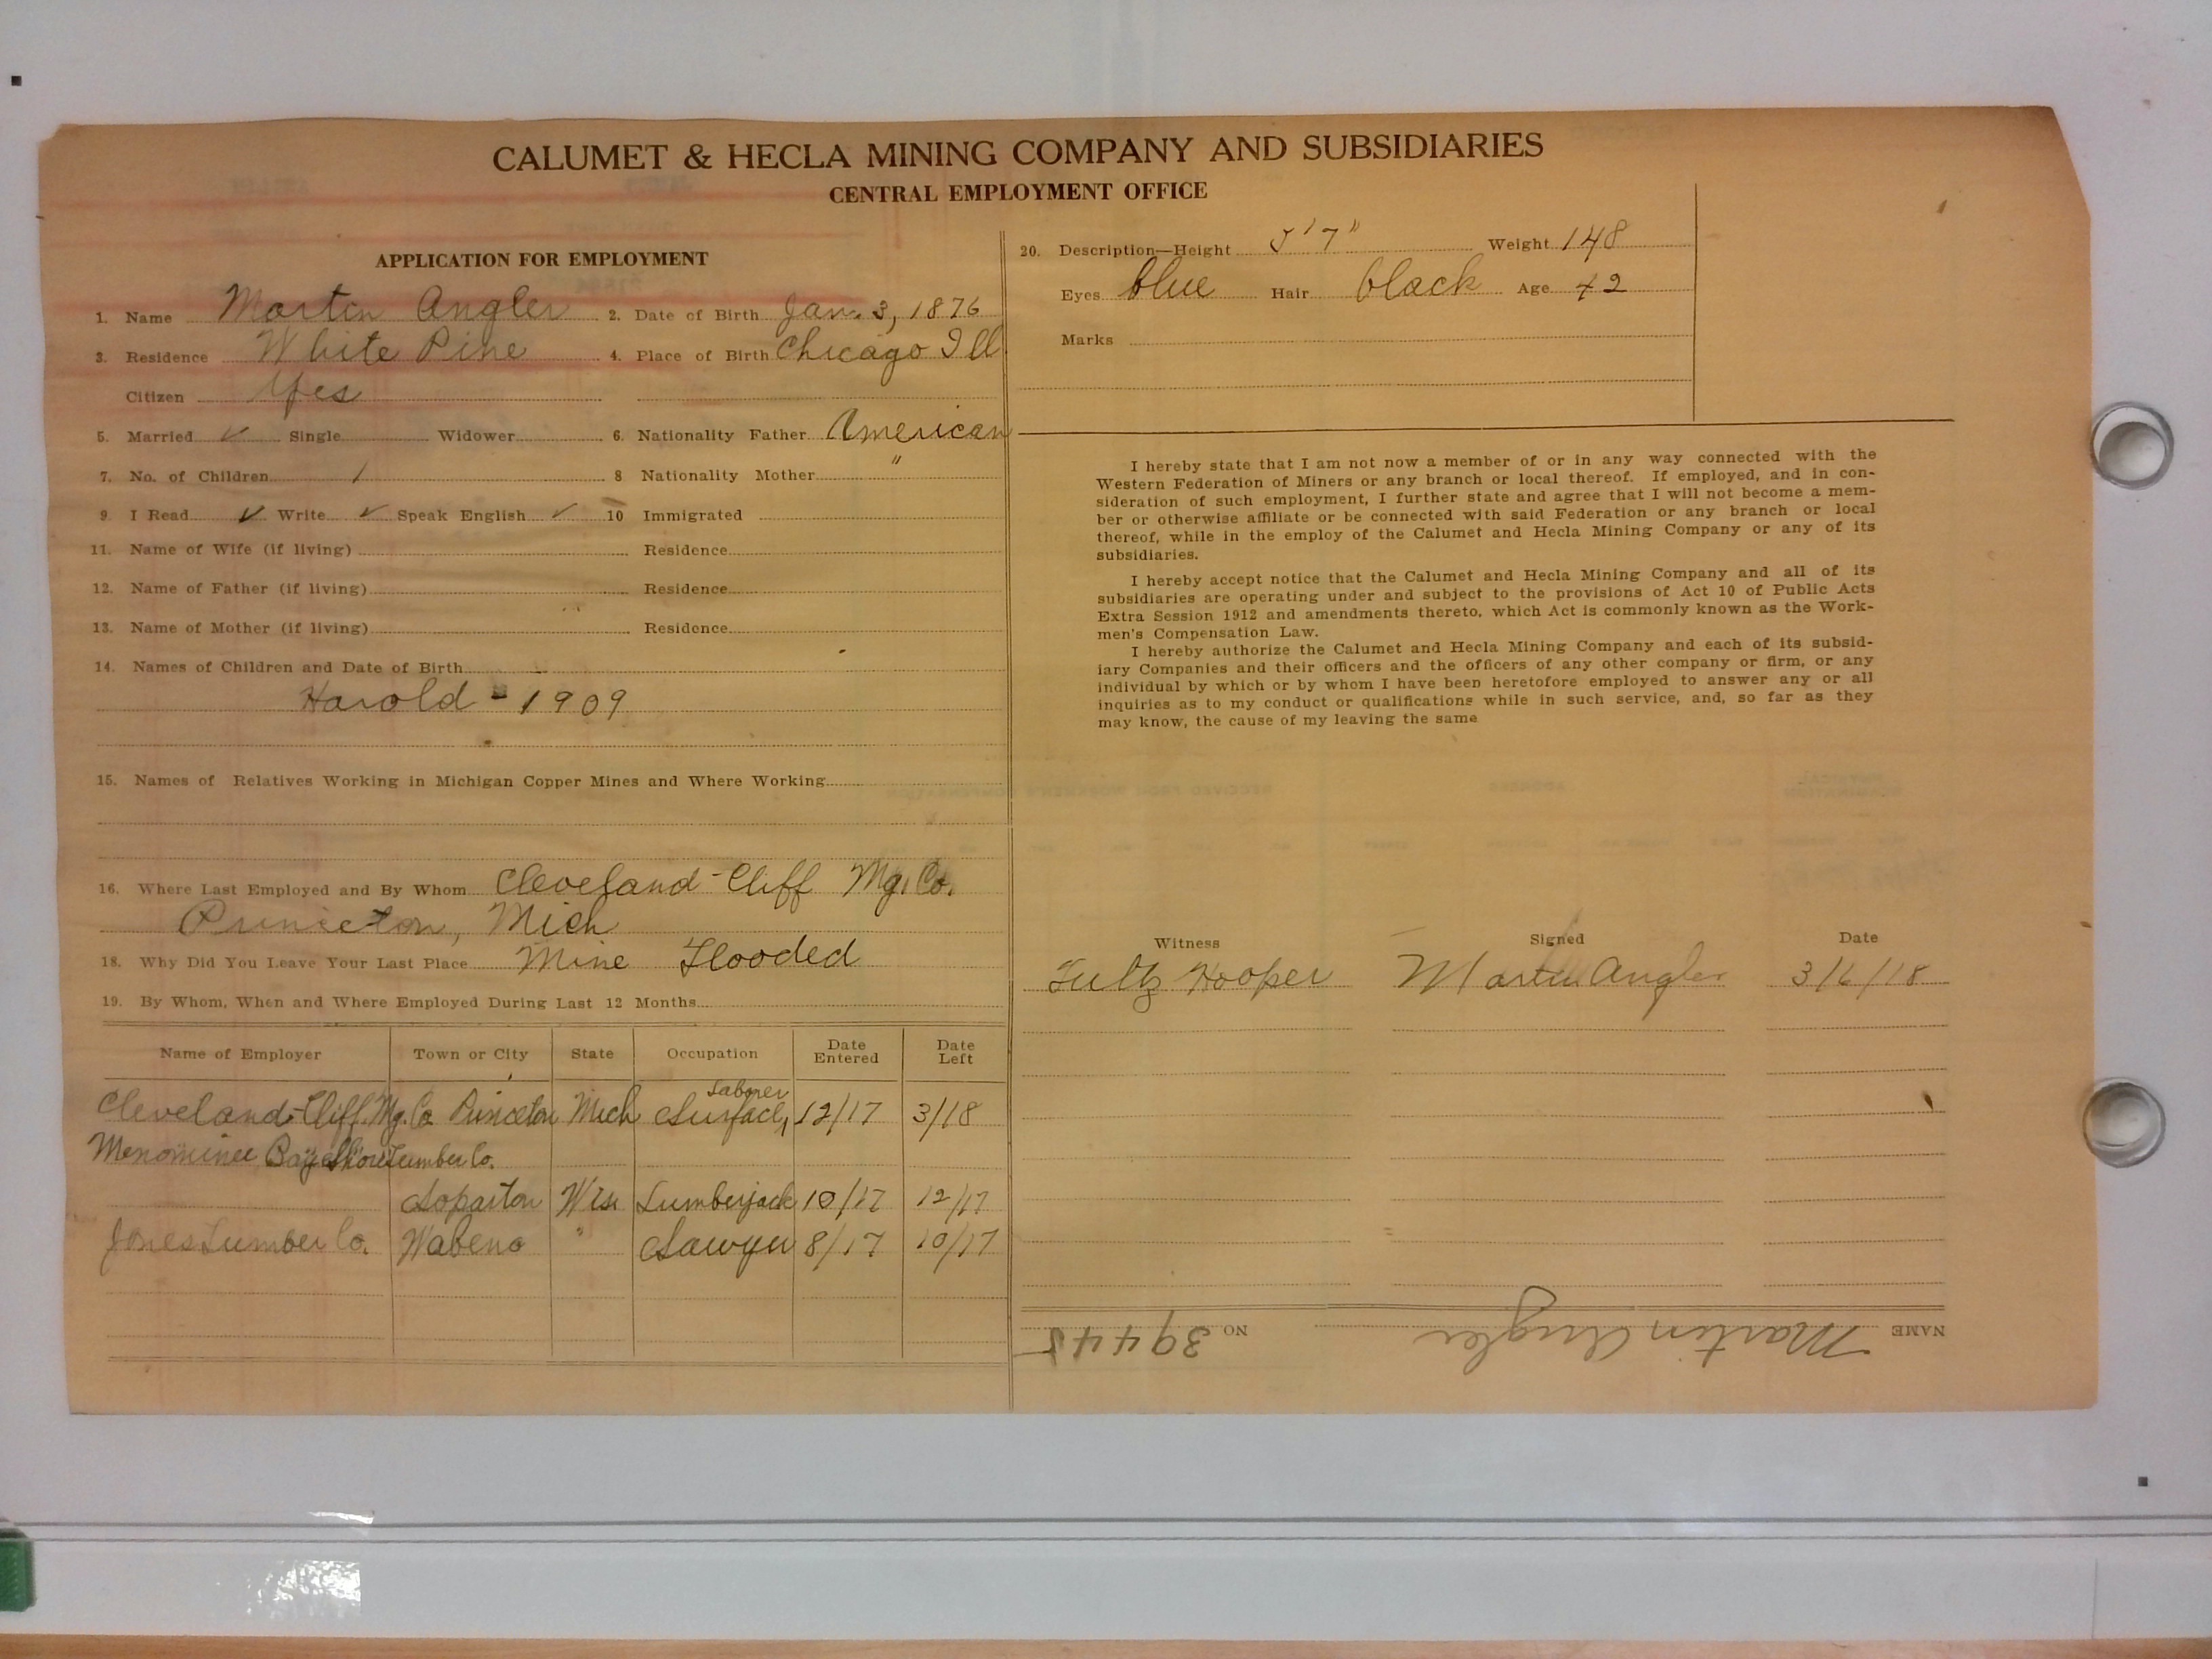 CALUMET & HECLA MINING COMPANY AND SUBSIDIARIES
CENTRAL EMPLOYMENT OFFICE
APPLICATION FOR EMPLOYMENT
1. Name Martin Angler 2. Date of Birth Jan. 3, 1876
3. Residence White Pine 4. Place of Birth Chicago Ill
Citizen Yes
5. Married ✓ Single Widower 6. Nationality Father American
7. No. of Children 1 8 Nationality Mother "
9 I Read ✓ Write ✓ Speak English ✓ 10 Immigrated
11. Name of Wife (if living) Residence
12. Name of Father (if living) Residence
13. Name of Mother (if living) Residence
14. Names of Children and Date of Birth
Harold - 1909
15. Names of Relatives Working in Michigan Copper Mines and Where Working
16. Where Last Employed and By Whom Cleveland-Cliff Mg. Co.
Princeton, Mich
18. Why Did You Leave Your Last Place Mine Flooded
19. By Whom, When and Where Employed During Last 12 Months
Name of Employer Town or City State Occupation Date Entered Date Left
Cleveland-Cliff Mg. Co Princeton Mich Surface Laborer 12/17 3/18
Menominee Bay Shore Lumber Co.
Soparton Wis Lumberjack 10/17 12/17
Jones Lumber Co. Wabeno " Sawyer 8/17 10/17
20. Description—Height 5' 7" Weight 148
Eyes blue Hair black Age 42
Marks
I hereby state that I am not now a member of or in any way connected with the
Western Federation of Miners or any branch or local thereof. If employed, and in con-
sideration of such employment, I further state and agree that I will not become a mem-
ber or otherwise affiliate or be connected with said Federation or any branch or local
thereof, while in the employ of the Calumet and Hecla Mining Company or any of its
subsidiaries.
I hereby accept notice that the Calumet and Hecla Mining Company and all of its
subsidiaries are operating under and subject to the provisions of Act 10 of Public Acts
Extra Session 1912 and amendments thereto, which Act is commonly known as the Work-
men's Compensation Law.
I hereby authorize the Calumet and Hecla Mining Company and each of its subsid-
iary Companies and their officers and the officers of any other company or firm, or any
individual by which or by whom I have been heretofore employed to answer any or all
inquiries as to my conduct or qualifications while in such service, and, so far as they
may know, the cause of my leaving the same
Witness Signed Date
Hooper Martin Angler 3/6/18
NAME Martin Angler NO 39445